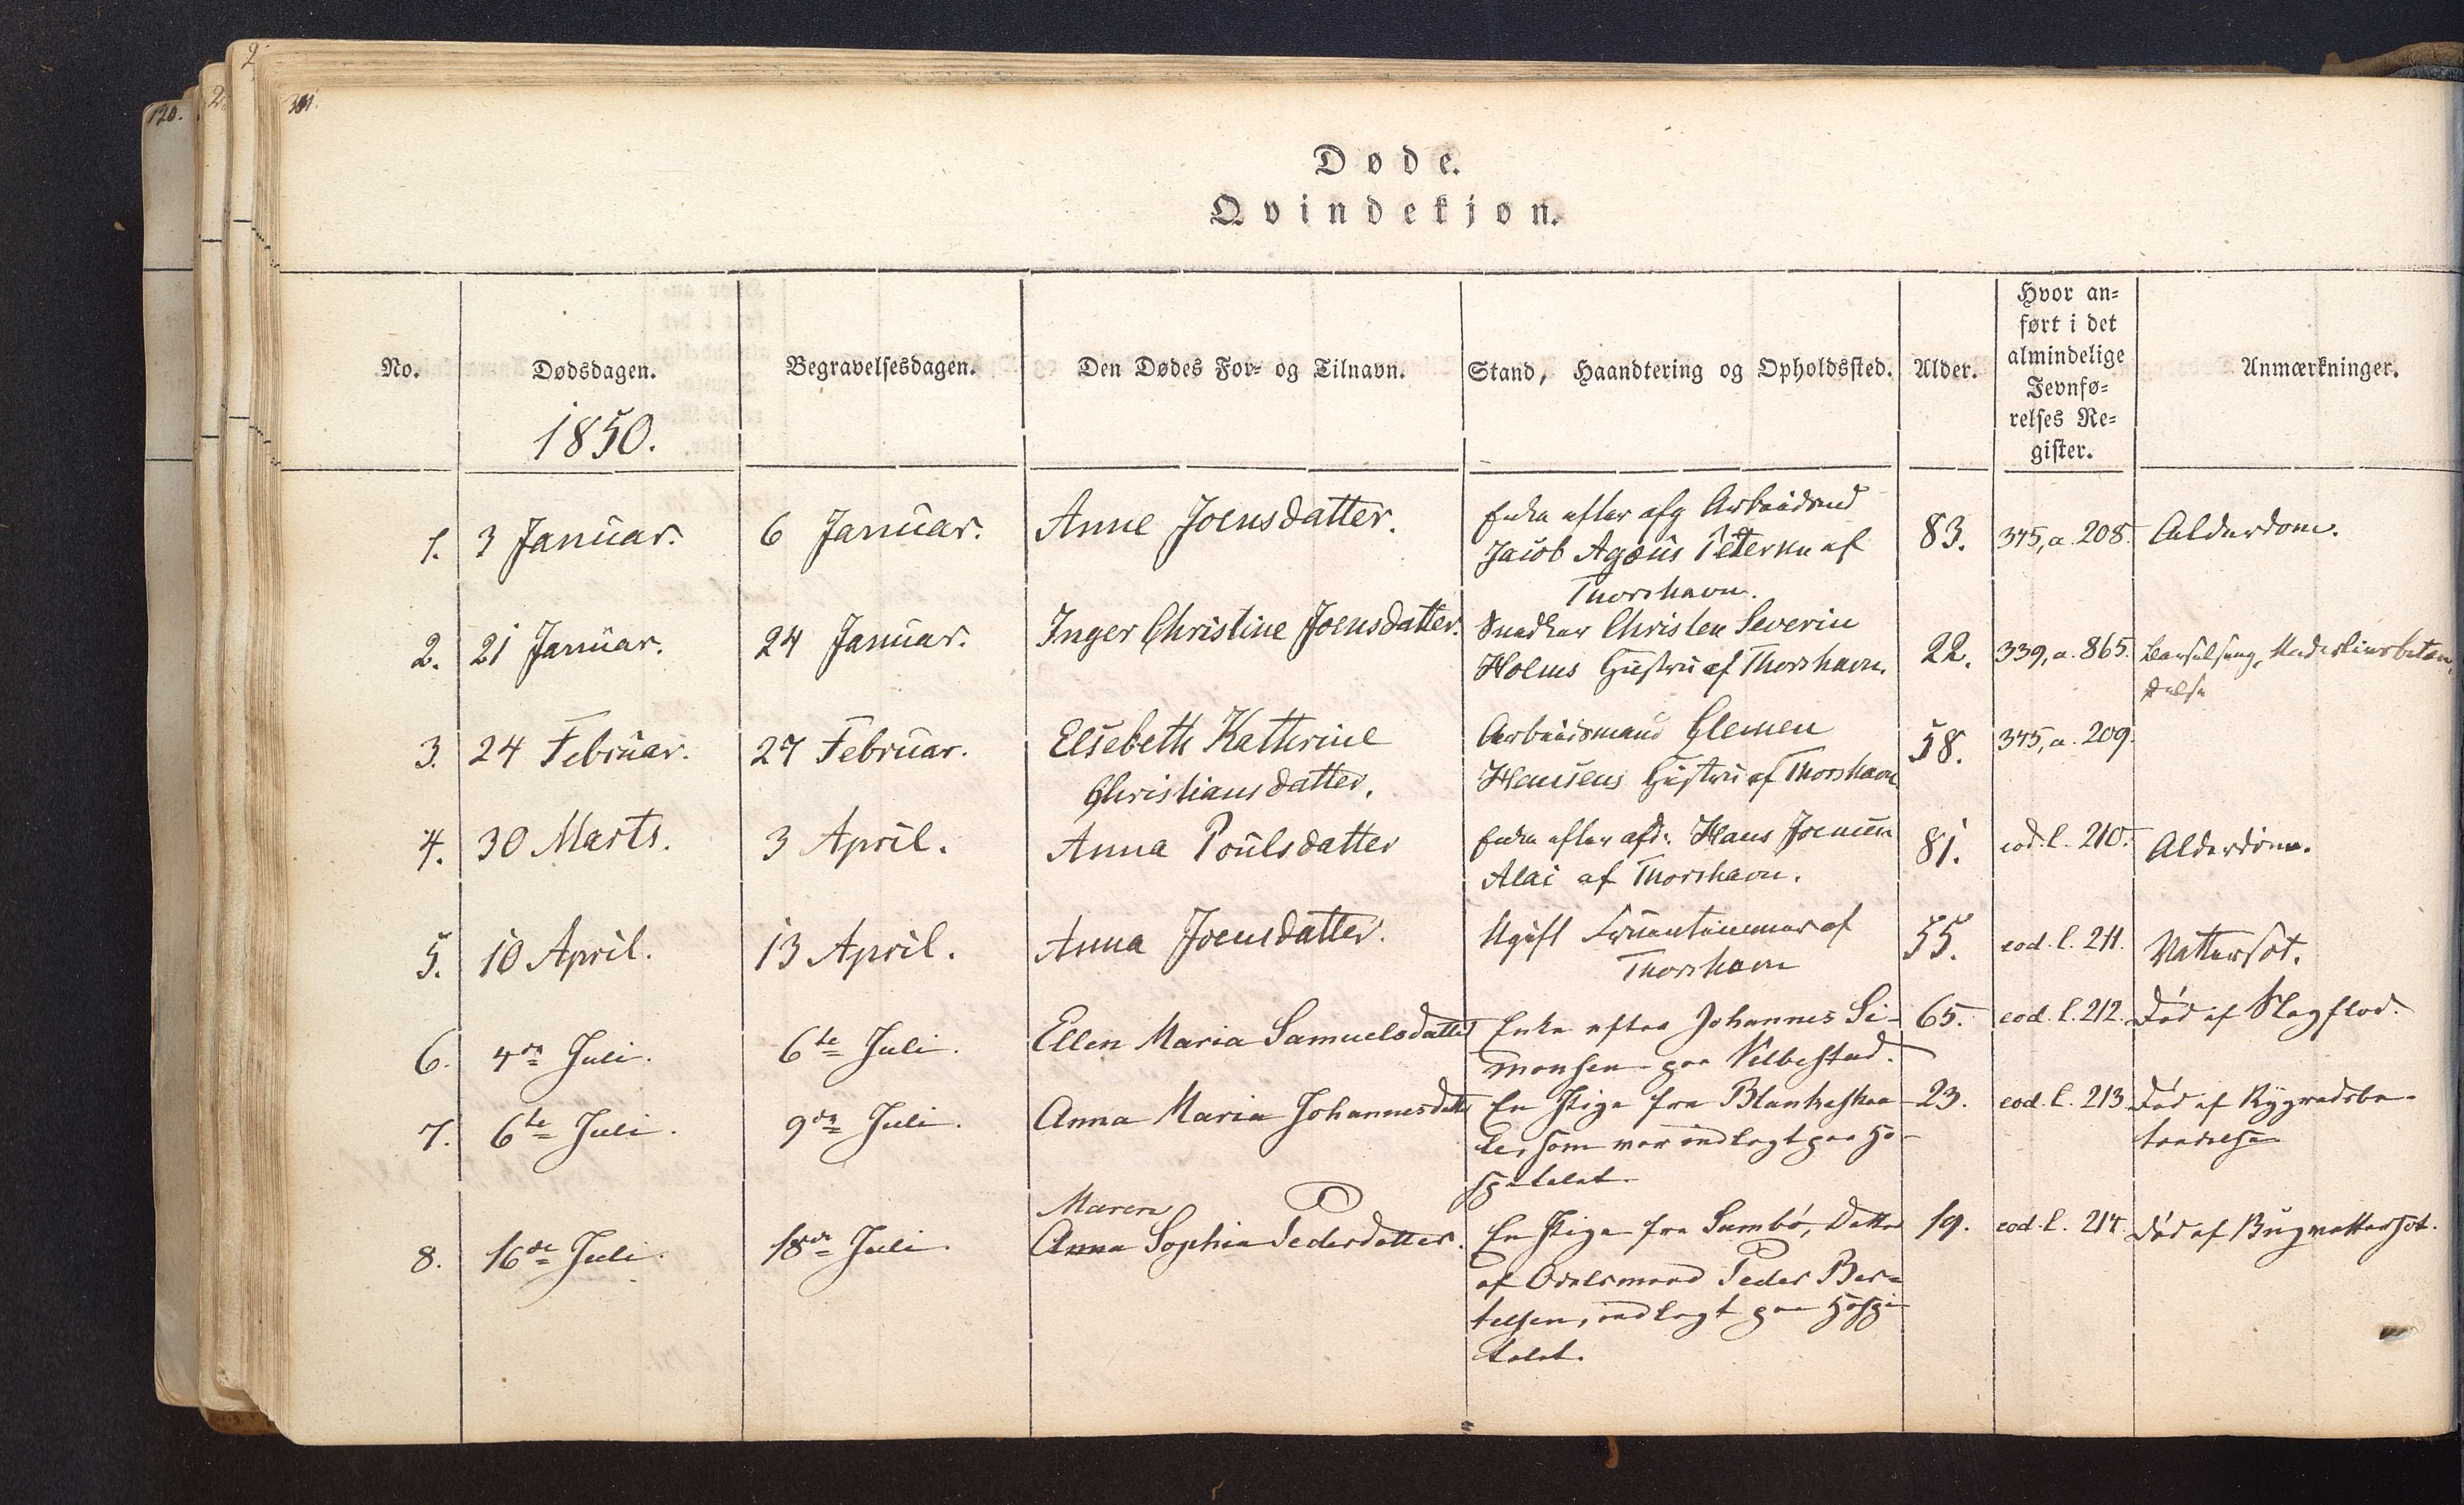 120.
2
2
Døde.
Qvindekjøn.
No.
Dødsdagen.
1850.
Begravelsesdagen.
Den Dødes For- og Tilnavn.
Stand, Haandtering og Opholdssted.
Alder.
Hvor an-
ført i det
almindelige
Jevnfø-
relses Re-
gister.
Anmærkninger.
1. 3 Januar. 6 Januar. Anne Joensdatter.
Enke efter afg Arbeidsmd
Jacob Agæus Petersen af
Thorshavn.
83. 345, a. 208. Alderdom.
2. 21 Januar. 24 Januar. Inger Christine Joensdatter.
Snedker Christen Severin
Holms Hustru af Thorshavn.
22. 339, a. 865. Barselseng, Underlivsbetæn-
delse
3. 24 Februar. 27 Februar. Elsebeth Katherine
Christiansdatter.
Arbeidsmand Clemen
Hansens Hustru af Thorshavn
58. 345, a. 209.
4. 30 Marts. 3 April. Anna Poulsdatter
Enke efter afd: Hans Joensen
Alai af Thorshavn.
81. eod. l. 210. Alderdom.
5. 10 April. 13 April. Anna Joensdatter.
Ugift Fruentimmer af
Thorshavn
55. eod. l. 211. Vattersot.
6. 4de Juli. 6te Juli. Ellen Maria Samuelsdatter
Enke efter Johannes Si-
monsen paa Velbestad.
65. eod. l. 212. Død af Slagflod.
7. 6te Juli. 9de Juli. Anna Maria Johannesdatt
En Pige fra Blankeskaa-
le, som var indlagt paa Ho-
spitalet.
23. eod. l. 213. Død af Rygradsbe-
tændelse
8. 16de Juli. 18de Juli.
Maren
Anna Sophia Pedersdatter.
En Pige fra Sumbø, Datter
af Odelsmand Peder Ber-
telsen, indlagt paa Hospi-
talet.
19. eod. l. 214. Død af Bugvattersot.